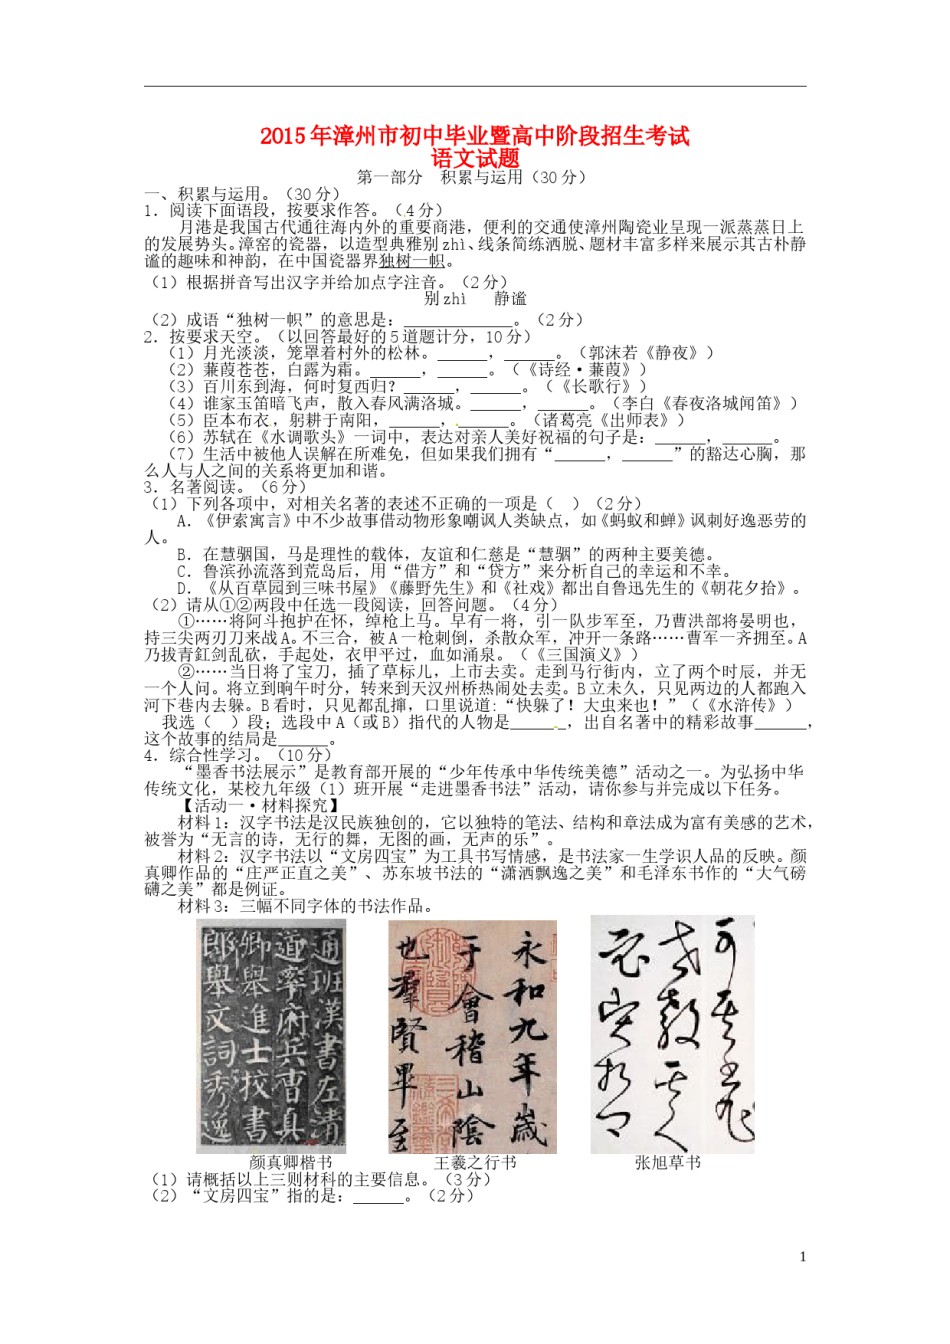 2015年漳州市初中毕业暨高中阶段招生考试
语文试题
第一部分　积累与运用（30分）
一、积累与运用。（30分）
1．阅读下面语段，按要求作答。（4分）
月港是我国古代通往海内外的重要商港，便利的交通使漳州陶瓷业呈现一派蒸蒸日上
的发展势头。漳窑的瓷器，以造型典雅别zhì、线条简练洒脱、题材丰富多样来展示其古朴静
谧的趣味和神韵，在中国瓷器界独树一帜。
（1）根据拼音写出汉字并给加点字注音。（2分）
别zhì　静谧
（2）成语“独树一帜”的意思是：_____________。（2分）
2．按要求天空。（以回答最好的5道题计分，10分）
（1）月光淡淡，笼罩着村外的松林。______，______。（郭沫若《静夜》）
（2）蒹葭苍苍，白露为霜。______，______。（《诗经·蒹葭》）
（3）百川东到海，何时复西归？______，______。（《长歌行》）
（4）谁家玉笛暗飞声，散入春风满洛城。______，______。（李白《春夜洛城闻笛》）
（5）臣本布衣，躬耕于南阳，______，______。（诸葛亮《出师表》）
（6）苏轼在《水调歌头》一词中，表达对亲人美好祝福的句子是：______，______。
（7）生活中被他人误解在所难免，但如果我们拥有“______，______”的豁达心胸，那
么人与人之间的关系将更加和谐。
3．名著阅读。（6分）
（1）下列各项中，对相关名著的表述不正确的一项是（　）（2分）
A．《伊索寓言》中不少故事借动物形象嘲讽人类缺点，如《蚂蚁和蝉》讽刺好逸恶劳的
人。
B．在慧骃国，马是理性的载体，友谊和仁慈是“慧骃”的两种主要美德。
C．鲁滨孙流落到荒岛后，用“借方”和“贷方”来分析自己的幸运和不幸。
D．《从百草园到三味书屋》《藤野先生》和《社戏》都出自鲁迅先生的《朝花夕拾》。
（2）请从①②两段中任选一段阅读，回答问题。（4分）
①……将阿斗抱护在怀，绰枪上马。早有一将，引一队步军至，乃曹洪部将晏明也，
持三尖两刃刀来战A。不三合，被A一枪刺倒，杀散众军，冲开一条路……曹军一齐拥至。A
乃拔青釭剑乱砍，手起处，衣甲平过，血如涌泉。（《三国演义》）
②……当日将了宝刀，插了草标儿，上市去卖。走到马行街内，立了两个时辰，并无
一个人问。将立到晌午时分，转来到天汉州桥热闹处去卖。B立未久，只见两边的人都跑入
河下巷内去躲。B看时，只见都乱撺，口里说道:“快躲了！大虫来也！”（《水浒传》）
我选（　）段；选段中A（或B）指代的人物是______，出自名著中的精彩故事______，
这个故事的结局是______。
4．综合性学习。（10分）
“墨香书法展示”是教育部开展的“少年传承中华传统美德”活动之一。为弘扬中华
传统文化，某校九年级（1）班开展“走进墨香书法”活动，请你参与并完成以下任务。
【活动一·材料探究】
材料1：汉字书法是汉民族独创的，它以独特的笔法、结构和章法成为富有美感的艺术，
被誉为“无言的诗，无行的舞，无图的画，无声的乐”。
材料2：汉字书法以“文房四宝”为工具书写情感，是书法家一生学识人品的反映。颜
真卿作品的“庄严正直之美”、苏东坡书法的“潇洒飘逸之美”和毛泽东书作的“大气磅
礴之美”都是例证。
材料3：三幅不同字体的书法作品。
通班汉書左清
道率府兵曹真
卿舉進士校書
郎舉文詞秀逸
永和九年歲
于會稽山陰
也羣賢畢至
颜真卿楷书
王羲之行书
张旭草书
（1）请概括以上三则材科的主要信息。（3分）
（2）“文房四宝”指的是：______。（2分）
1